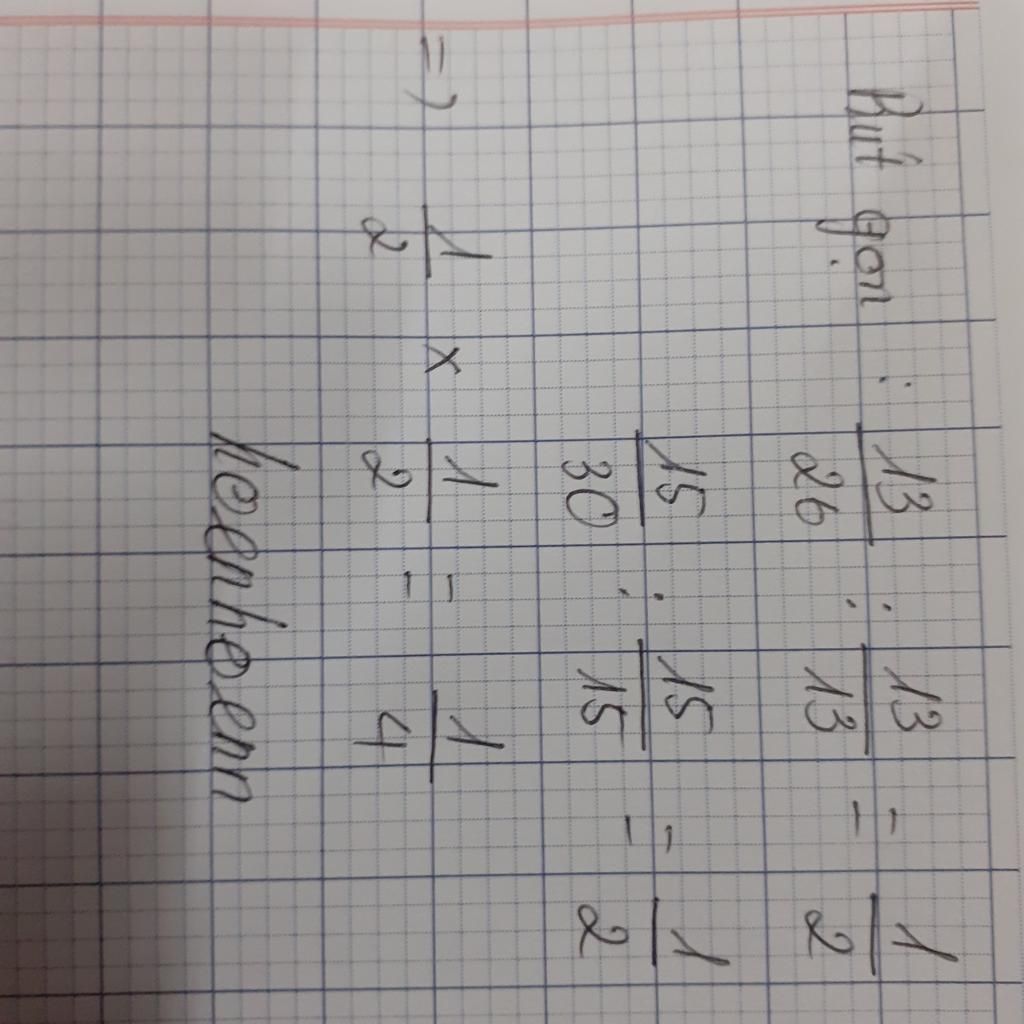 Rút gọn : 13/26 : 13/13 = 1/2
15/30 : 15/15 = 1/2
=> 1/2 x 1/2 = 1/4
hoenhoenn